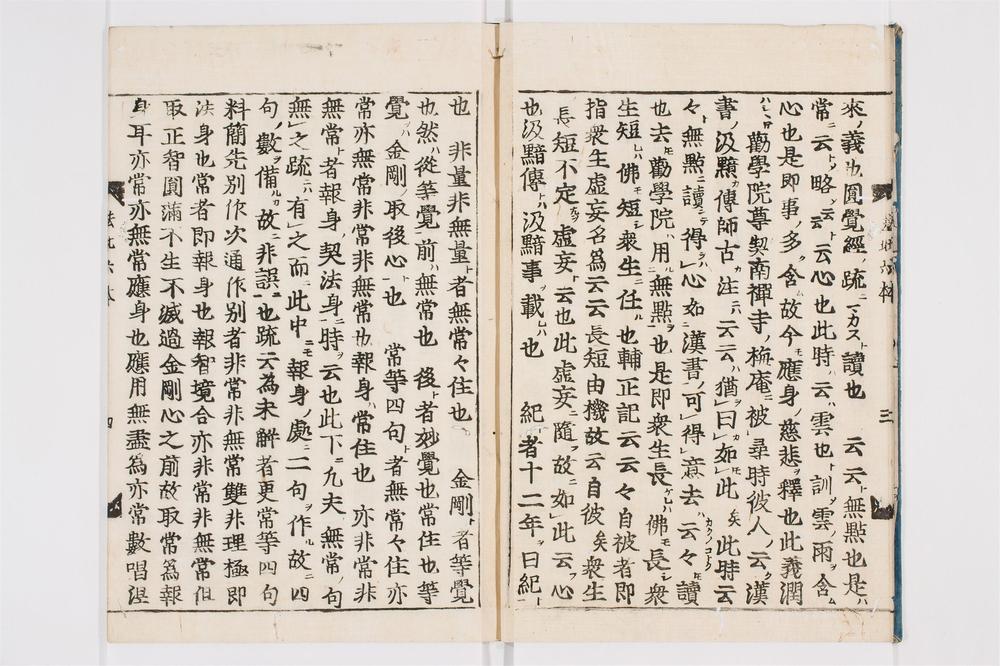 來ノ義也圓覺經ノ疏ニマカスト讀也　云云ト無點也是ハ
常ニ云トハ略シテ云ト云心也此時ノ云ハ雲也ト訓ヲ雲ノ雨ヲ含ム
心也是即事ノ多ヲ含ム故今モ應身ノ慈悲ヲ釋也此義潤
勸學院尊契南禪寺ノ栬庵ニ被尋時彼人ノ云ク漢
書ノ汲黯カ傳師古カ注ニハ云云ハ猶曰如此矣此時云
々ト無點ニ讀シテ得心如漢書ノ可得意去ハ云々モ讀
也去モ勸學院ノ用ル無點ヲ也是即衆生長ケレハ佛モ長シ衆
生短レハ佛モ短シ衆生ニ任ル也輔正記云云々自被者即
指衆生虛妄名爲云云長短由機故云自彼矣衆生
長短不定ナルヲ虛妄ト云也此虛妄ニ隨フ故ニ如此云フ心
也汲黯傳トハ汲黯事ヲ載レハ也　紀ト者十二年ヲ曰紀ト
也　非量非無量ト者無常々住也　金剛ト者等覺
也然ハ從等覺前ハ無常也　後ト者妙覺也常住也等
覺ノハ金剛ノ取後心ト也　常等四句ト者無常々住亦
常亦無常非常非無常也報身ハ常住也　亦非常非
無常ト者報身ノ契法身ニ時ヲ云也此下ニ九夫無常ノ句
無之疏ニハ有之而ニ此中ニモ報身ノ處ニ二句ヲ作ル故ニ四
句ノ數ヲ備ルカ故ニ非誤ニ也疏云為未解者更常等四句
料簡先別作次通作別者非常非無常雙非理極即
法身也常者即報身也報智境合亦非常非無常但
取正智圓滿不生不滅過金剛心之前故取常爲報
身耳亦常亦無常應身也應用無盡為亦常數唱涅
三
四